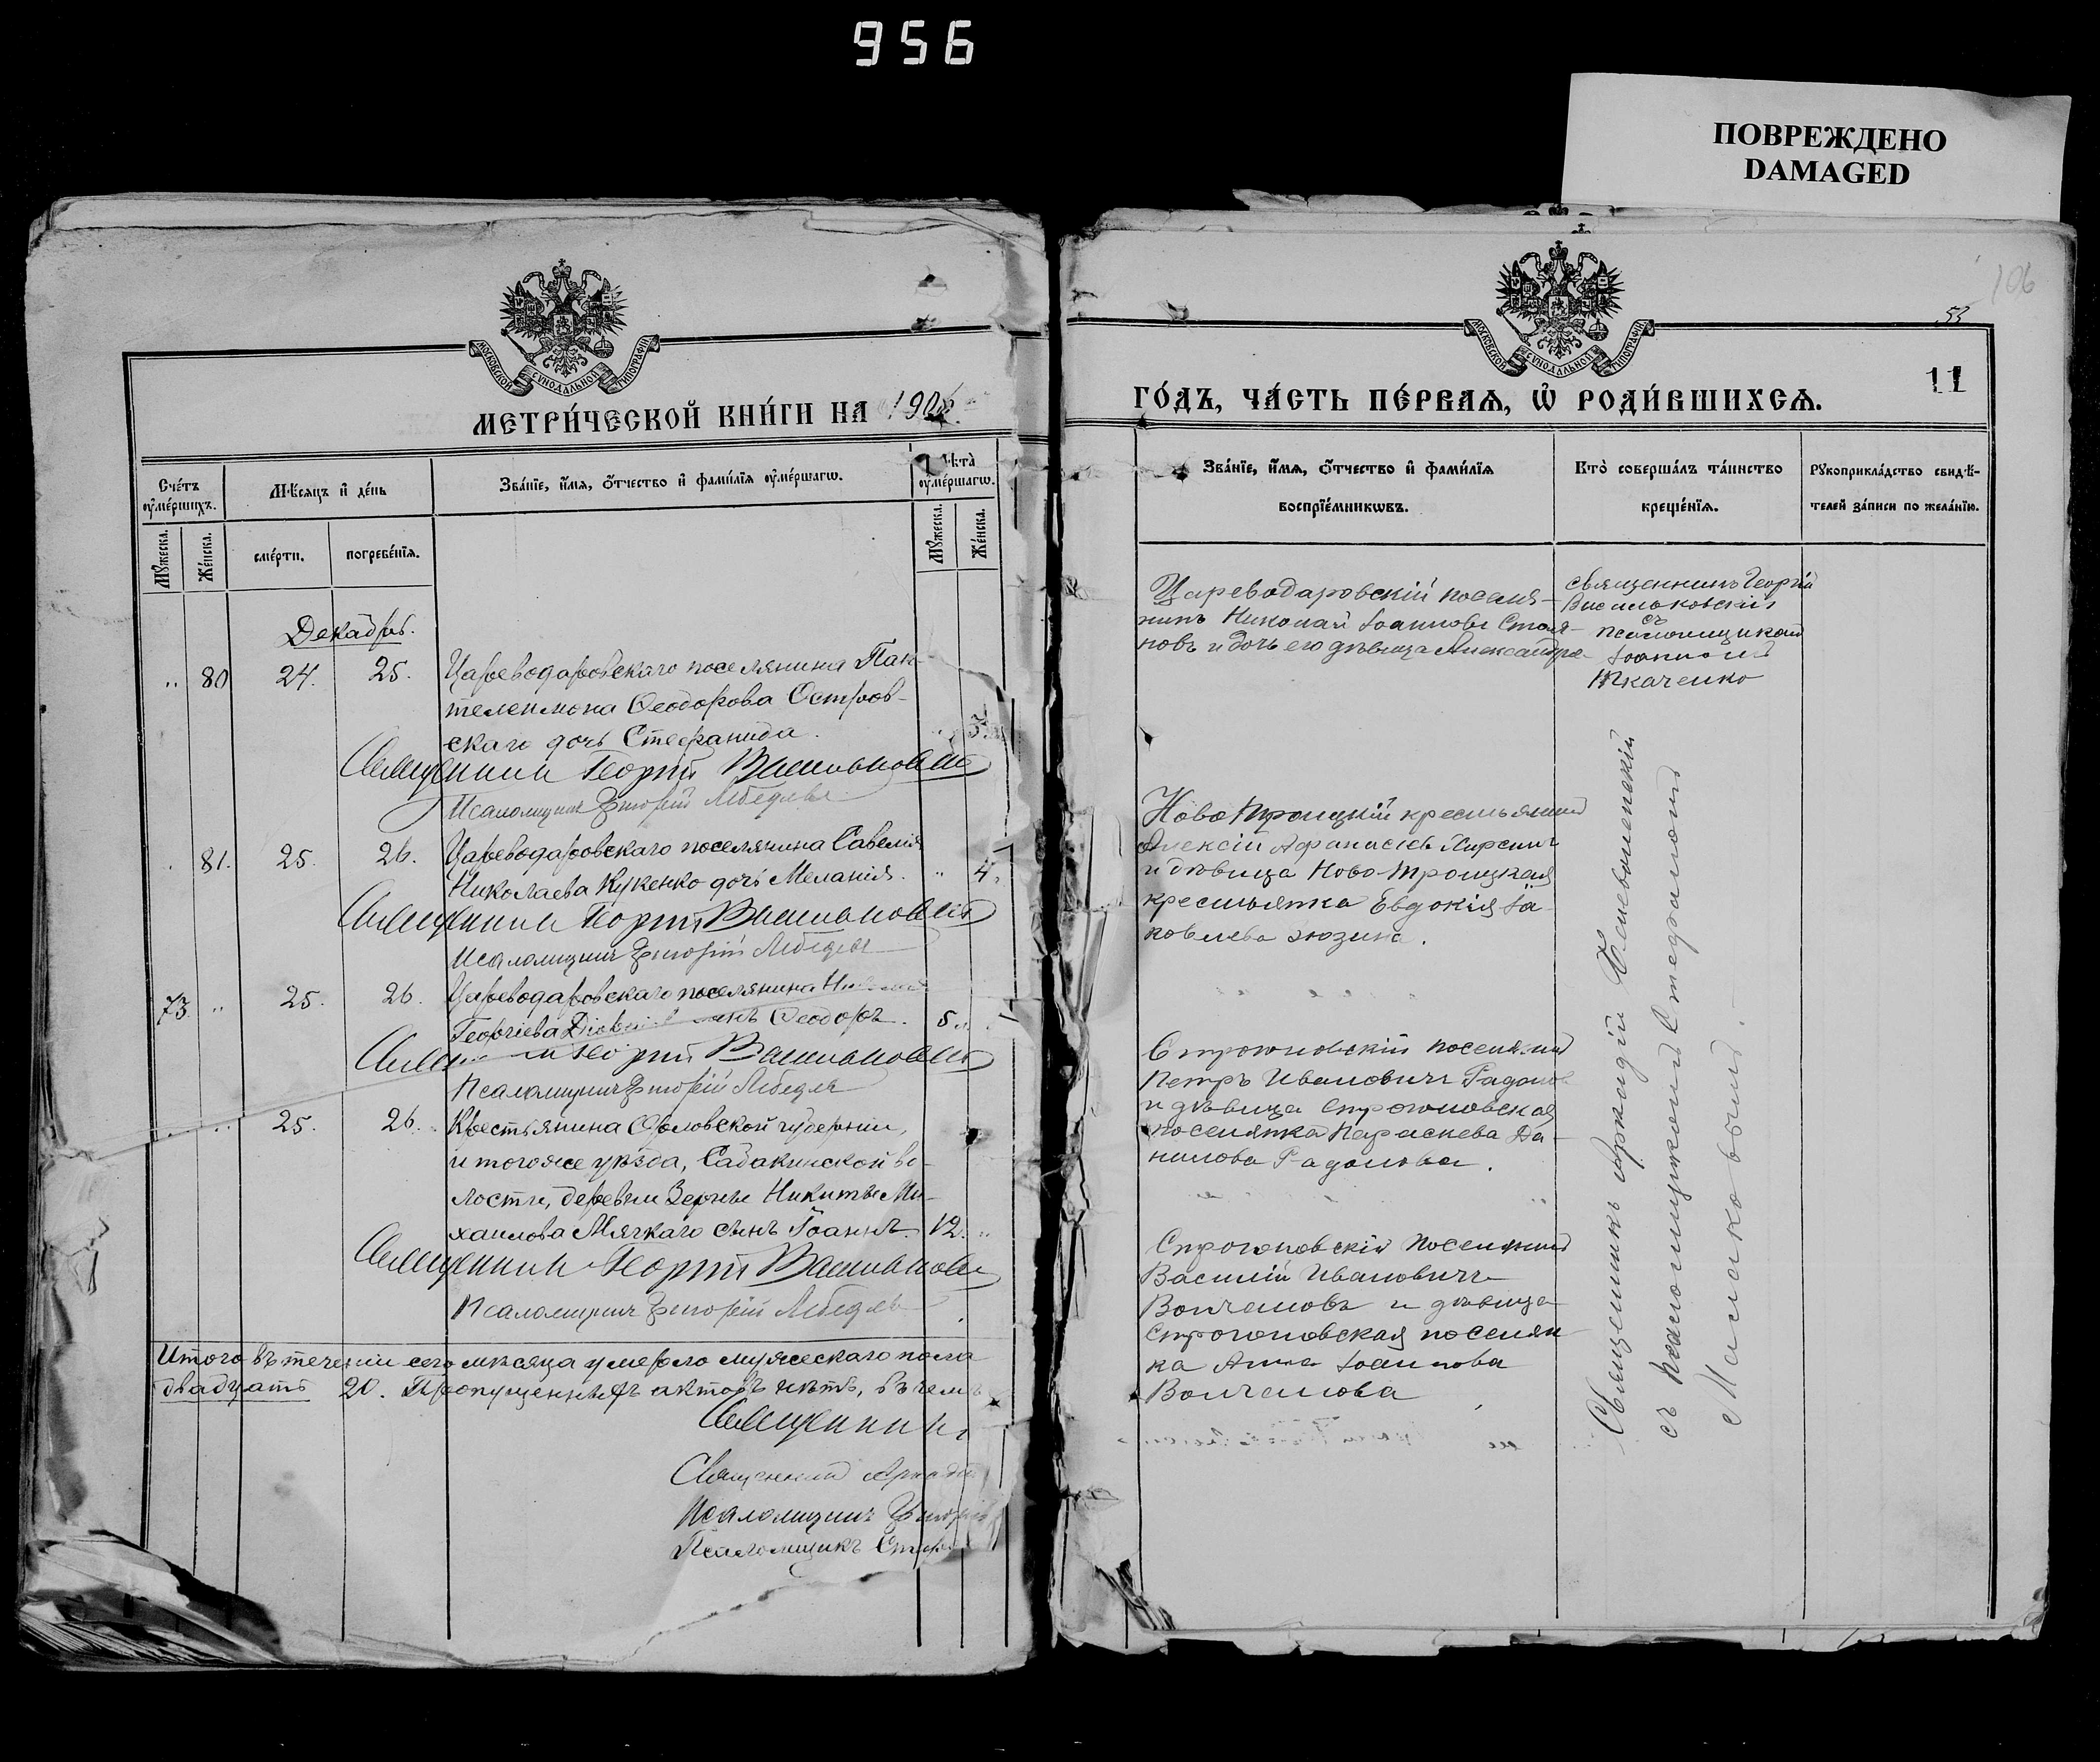 956
ПОВРЕЖДЕНО
DAMAGED
МОСКОВСКОЙ СѴНОДАЛЬНОЙ ТИПОГРАФІИ
МЕТРИ́ЧЕСКОЙ КНИ́ГИ НА 190
Сче́тъ ᲂу҆ме́ршихъ.
Мꙋ́жеска.
Же́нска.
Мѣ́сяцъ и҆ де́нь
сме́рти.
погребе́нїѧ.
Зва́нїе, и҆́мѧ, ѻ҆́тчество и҆ фами́лїѧ ᲂу҆ме́ршагѡ.
Лѣ́та ᲂу҆ме́ршагѡ.
Мꙋ́жеска.
Же́нска.
Декабрь.
80 24. 25. Цареводаровскаго поселянина Пан-
телеимона Ѳеодорова Остров-
скаго дочь Стефанида.
Священникъ Георгій Васильковскій
Псаломщикъ Григорій Лебедевъ
81. 25. 26. Цареводаровскаго поселянина Савелія
Николаева Кукенко дочь Меланія. 4.
Священникъ Георгій Васильковскій
Псаломщикъ Григорій Лебедевъ
73. 25. 26. Цареводаровскаго поселянина
Георгіева сынъ Ѳеодоръ. 5.
Георгій Васильковскій
Псаломщикъ Григорій Лебедевъ
25. 26. Крестьянина Орловской губерніи,
и того же уѣзда, Сабакинской во-
лости, деревни Никиты Ми-
хаилова Мягкаго сынъ Іоаннъ. 12.
Священникъ Георгій Васильковскій
Псаломщикъ Григорій Лебедевъ
Итого въ теченіи сего мѣсяца умерло мужескаго пола
двадцать 20. Пропущенныхъ актовъ нѣтъ, въ чемъ
Священникъ
Священникъ Аркадій
Псаломщикъ Григорій
Псаломщикъ Стефа
106
53
11
МОСКОВСКОЙ СѴНОДАЛЬНОЙ ТИПОГРАФІИ
ГО́ДЪ, ЧА́СТЬ ПЕ́РВАѦ, Ѡ҆ РОДИ́ВШИХСѦ.
Зва́нїе, и҆́мѧ, ѻ҆́тчество и҆ фами́лїѧ
воспрїе́мникѡвъ.
Кто̀ соверша́лъ та́инство
креще́нїѧ.
Рꙋкоприкла́дство свидѣ́-
телей за́писи по жела́нїю.
Цареводаровскій поселя-
нинъ Николай Іоанновъ Стоя-
новъ и дочь его дѣвица Александра
Священникъ Георгій
Васильковскій
съ
псаломщикомъ
Іоанномъ
Ткаченко
Ново Троицкій крестьянинъ
Алексій Афанасіевъ
и дѣвица Ново-Троицкая
крестьянка Евдокія Іа-
ковлева Зюзина.
Строгоновскій поселянинъ
Петръ Ивановичъ Радоновъ
и дѣвица Строгоновская
поселянка Параскева Да-
нилова Радонова.
Строгоновскій поселянинъ
Василій Ивановичъ
Волчановъ и дѣвица
Строгоновская поселян-
ка Анна Іоаннова
Волчанова
Священникъ Аркадій
съ псаломщикомъ Стефаномъ